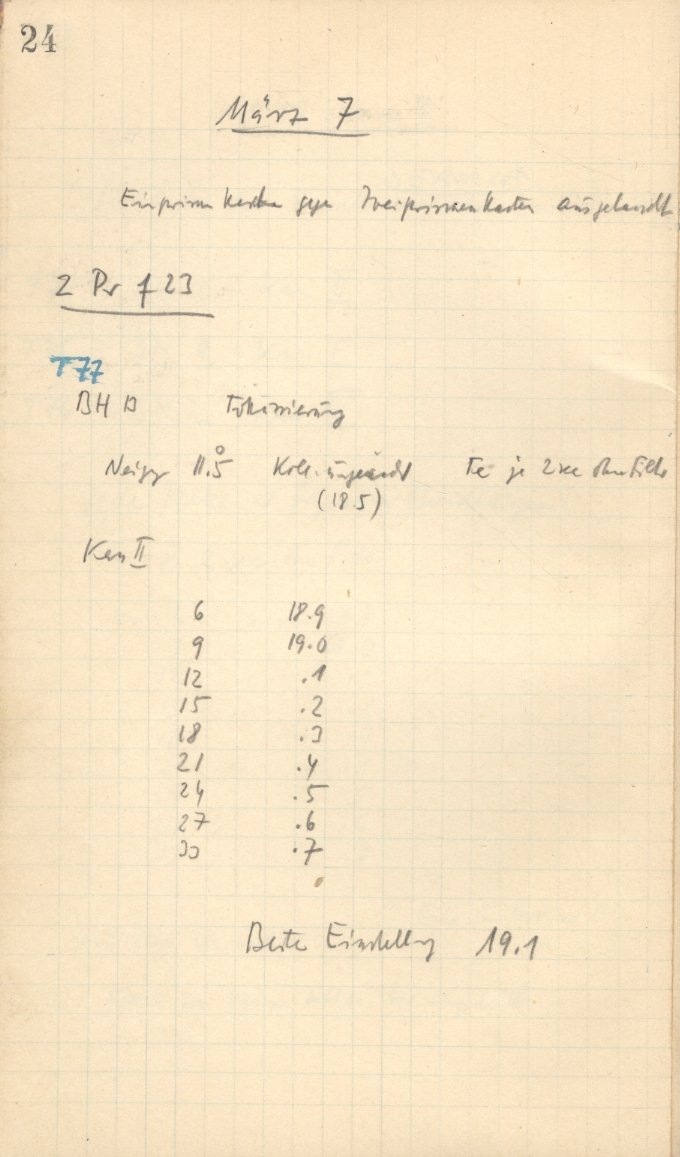 24
März 7
Einprismenkasten gegen Zweiprismenkasten ausgetauscht
2 Pr f 23
T77
BH D Fokussierung
Neigg 11.5° Koll. ungeändt Te je 2 sec ohne Filter
(18 5)
Kass II
6 18.9
9 19.0
12 .1
15 .2
18 .3
21 .4
24 .5
27 .6
30 .7
Beste Einstellung 19.1